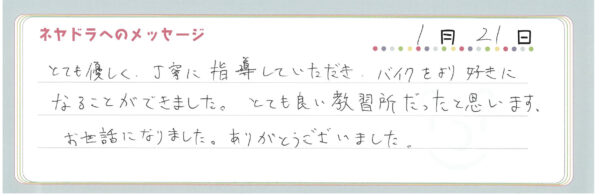 ネヤドラへのメッセージ 1月21日
とても優しく、丁寧に指導していただき、バイクをより好きに
なることができました。とても良い教習所だったと思います、
お世話になりました。ありがとうございました。